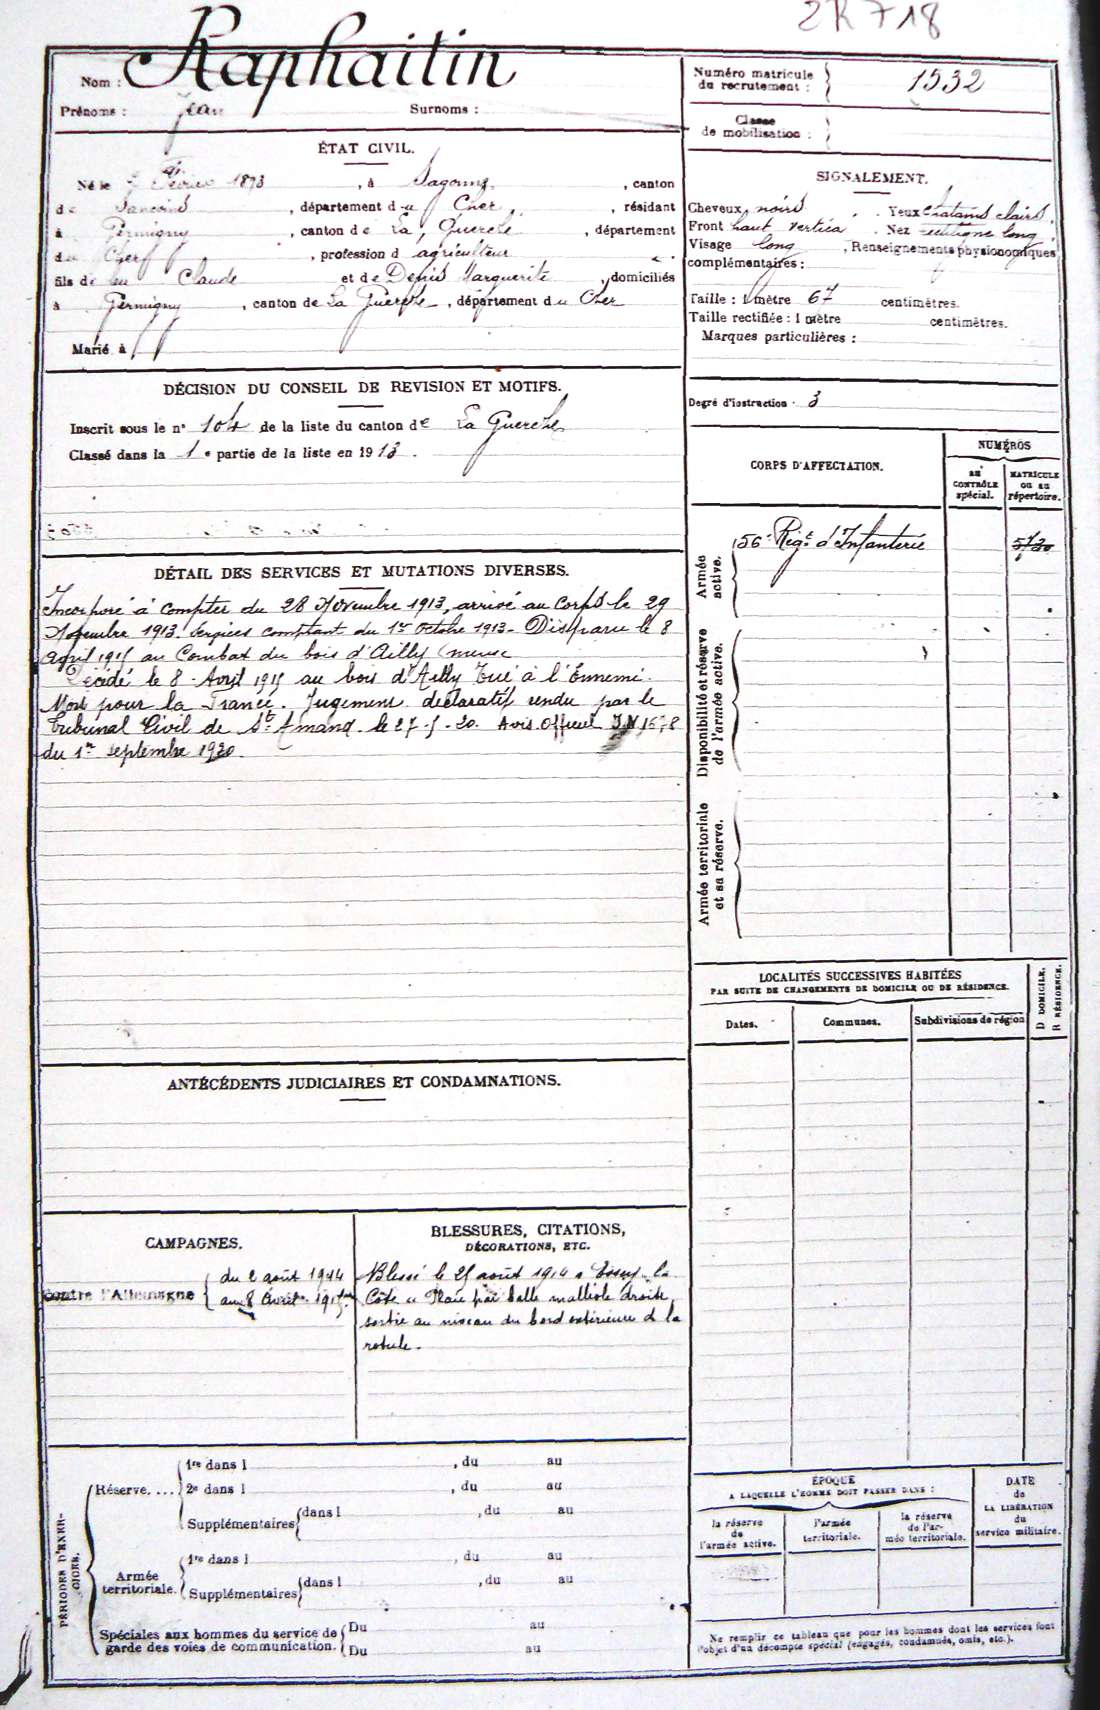 2R 718
Nom : Raphaitin
Prénoms : Jean Surnoms :
Numéro matricule du recrutement : 1532
Classe de mobilisation :
ÉTAT CIVIL.
Né le Février 1893, à Sagonne, canton
de Sancoins, département du Cher, résidant
à Germigny, canton de La Guerche, département
du Cher, profession d'agriculteur
fils de feu Claude et de Denis Marguerite, domiciliés
à Germigny, canton de La Guerche, département du Cher
Marié à
SIGNALEMENT.
Cheveux noirs. Yeux chatains clairs.
Front haut vertical. Nez rectiligne long.
Visage long, Renseignements physionomiques
complémentaires :
Taille : 1 mètre 67 centimètres.
Taille rectifiée : 1 mètre centimètres.
Marques particulières :
Degré d'instruction 3
DÉCISION DU CONSEIL DE REVISION ET MOTIFS.
Inscrit sous le n° 104 de la liste du canton de La Guerche
Classé dans la 1e partie de la liste en 1913.
CORPS D'AFFECTATION.
NUMÉROS
au CONTRÔLE spécial.
MATRICULE ou au répertoire.
Armée active.
56e Régt d'Infanterie 5730
Disponibilité et réserve de l'armée active.
Armée territoriale et sa réserve.
DÉTAIL DES SERVICES ET MUTATIONS DIVERSES.
Incorporé à compter du 28 Novembre 1913, arrivé au Corps le 29
Novembre 1913. Services comptant du 1er Octobre 1913 - Disparu le 8
Avril 1915 au Combat du bois d'Ailly (meuse
Décédé le 8 Avril 1915 au bois d'Ailly Tué à l'Ennemi.
Mort pour la France. Jugement déclaratif rendu par le
Tribunal Civil de St Amand le 27-5-20. Avis Officiel
du 1er septembre 1920.
LOCALITÉS SUCCESSIVES HABITÉES
PAR SUITE DE CHANGEMENTS DE DOMICILE OU DE RÉSIDENCE.
D DOMICILE.
R RÉSIDENCE.
Dates. Communes. Subdivisions de région
ANTÉCÉDENTS JUDICIAIRES ET CONDAMNATIONS.
CAMPAGNES.
Contre l'Allemagne
du 2 août 1914
au 8 Avril 1915
BLESSURES, CITATIONS,
DÉCORATIONS, ETC.
Blessé le 25 août 1914 à Essey la
Côte par balle malléole droite,
sortie au niveau du bord extérieure de la
rotule.
PÉRIODES D'EXERCICES.
Réserve....
1re dans l , du au
2e dans l , du au
Supplémentaires dans l , du au
Armée territoriale.
1re dans l , du au
Supplémentaires dans l , du au
Spéciales aux hommes du service de garde des voies de communication.
Du au
Du au
ÉPOQUE
A LAQUELLE L'HOMME DOIT PASSER DANS :
la réserve de l'armée active.
l'armée territoriale.
la réserve de l'armée territoriale.
DATE de LA LIBÉRATION du service militaire.
Ne remplir ce tableau que pour les hommes dont les services font
l'objet d'un décompte spécial (engagés, condamnés, omis, etc.).